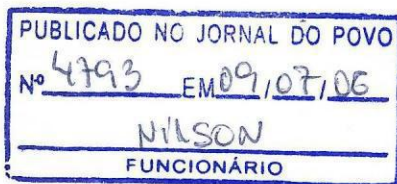 PUBLICADO NO JORNAL DO POVO
Nº 4793 EM 09/07/06
NILSON
FUNCIONÁRIO